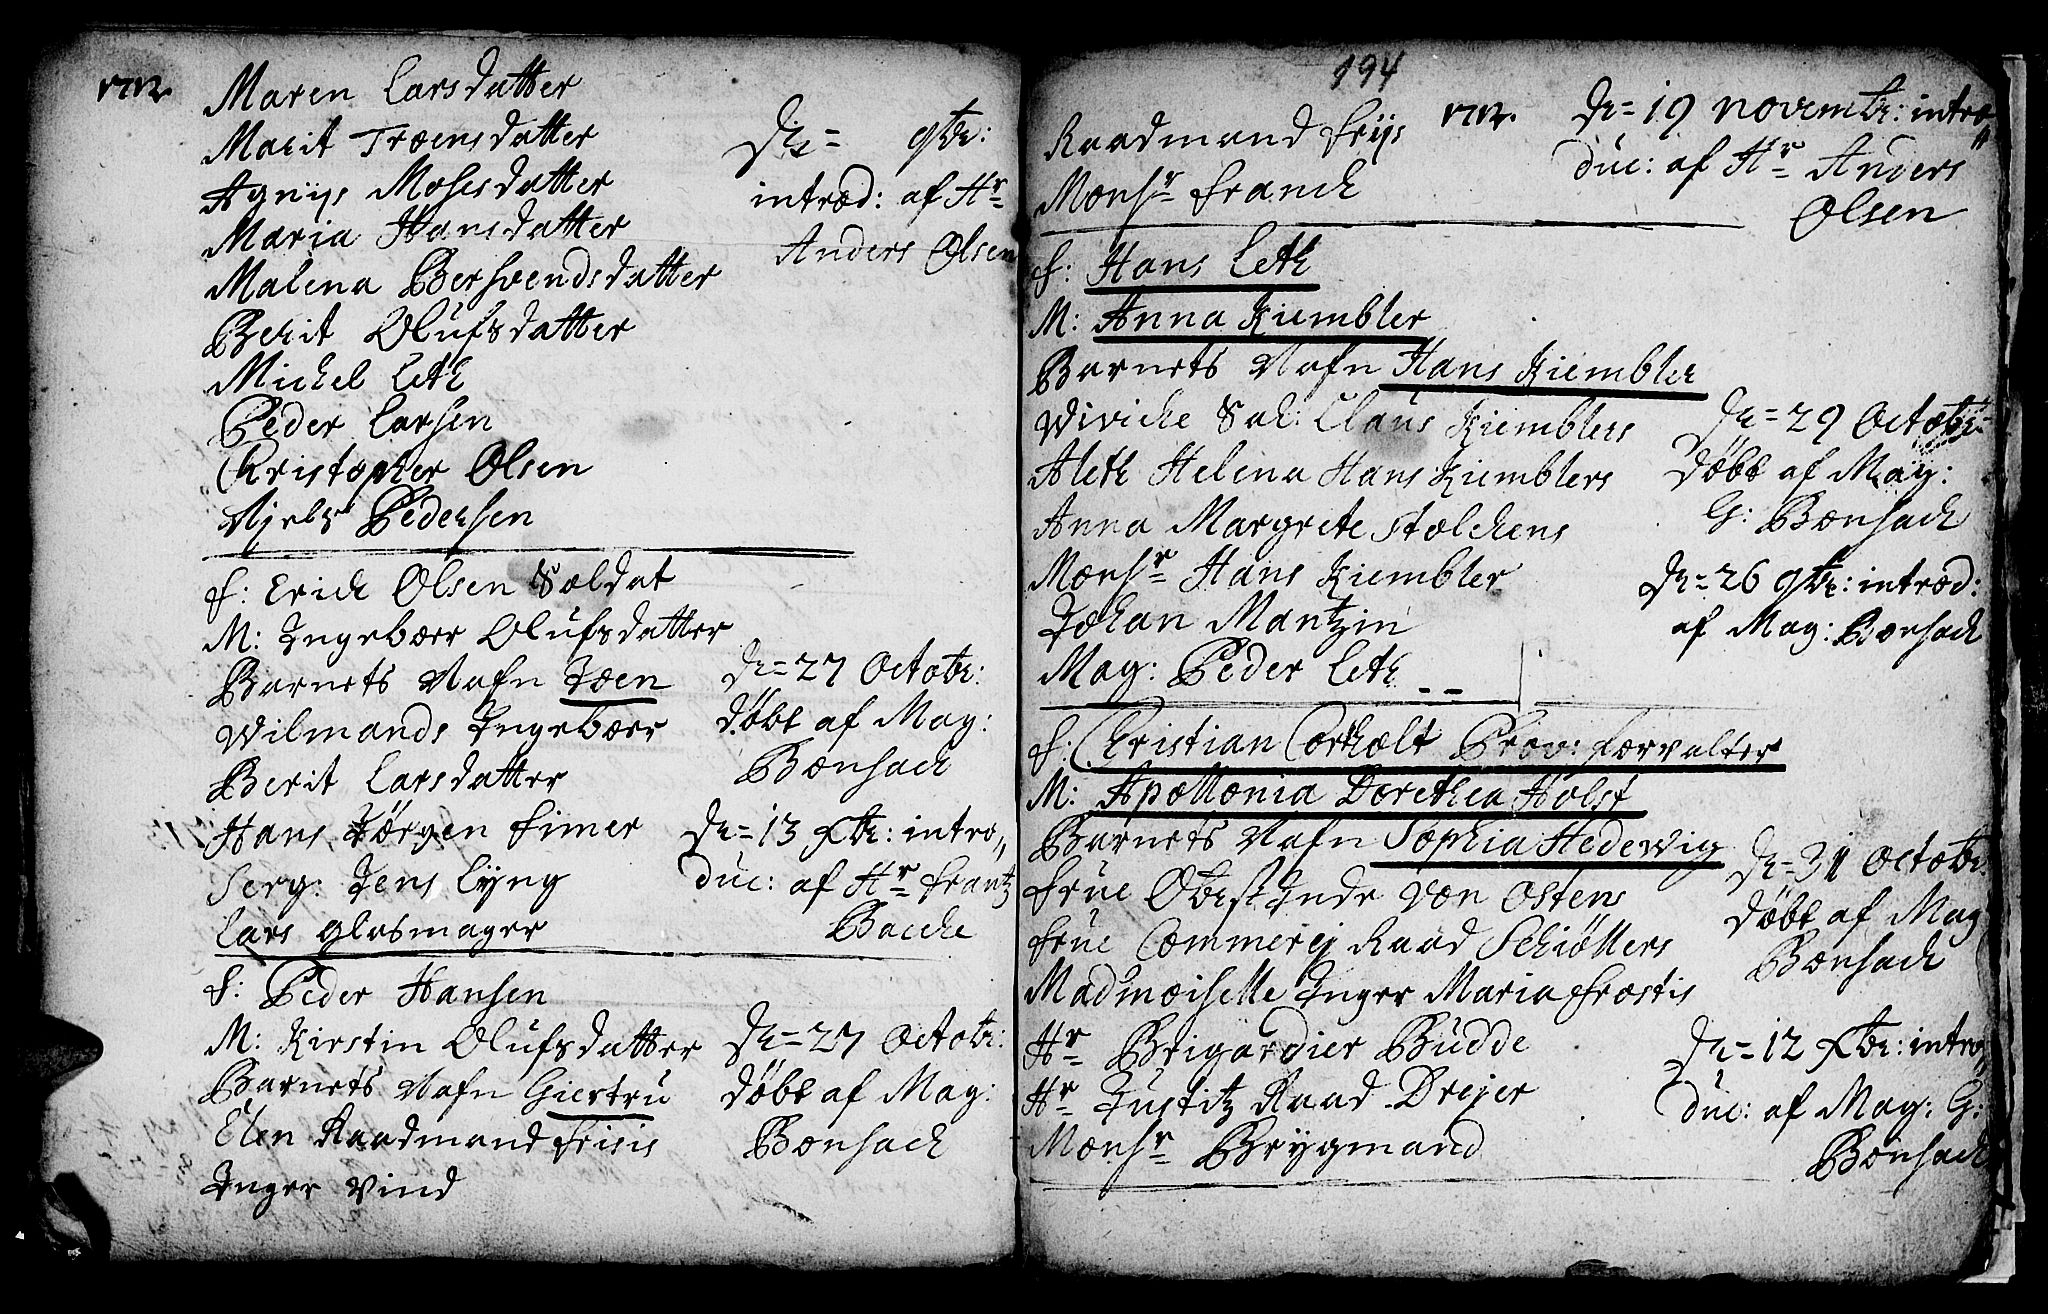 1712.
Maren Larsdatter
Marit Troensdatter
Agnijs Mosesdatter
Maria Hansdatter
Malena Bersvendsdatter
Berit Olufsdatter
Michel Leth
Peder Larsen
Christopher Olsen
Njels Pedersen
D= 9br:
introd: af Hr
Anders Olsen
f: Erich Olsen Soldat
M: Ingebor Olufsdatter
Barnets Nafn Joen
Wilmands Ingebor
Berit Larsdatter
Hans Jörgen Fimer
Serg: Jens Lyng
Lars glasmager
D= 27 Octobr:
döbt af Mag:
Bonsach
D= 13 Xbr: intro„
duc: af Hr Frantz
Bacche
f: Peder Hansen
M: Kirstin Olufsdatter
Barnets Nafn Giertru
Elen Raadmand Frisis
Inger Vind
D= 27 Octobr:
döbt af Mag:
Bonsach
194
1712.
Raadmand Frijs
Monsr Franch
D= 19 novembr: intro„
duc: af Hr Anders
Olsen
f: Hans Leth
M: Anna Kiembler
Barnets Nafn Hans Kiembler
Wiviche Sal: Claus Kiemblers
Aleth Helena Hans Kiemblers
Anna Margrete Stolchens
Monsr Hans Kiembler
Johan Mantzin
Mag: Peder Leth
D= 29 Octobr:
döbt af Mag:
G: Bonsach
D= 26 9br: introd:
af Mag: Bonsach
f: Christian Corholt Prov: forvalter
M: Apollonia Dorethea Holst
Barnets Nafn Sophia Hedewig
Frue Obrstinde von Ostens
Frue Commercj Raad Schiöllers
Madmoiselle Inger Maria Frostis
Hr Brigardier Budde
Hr Justitz Raad Drejer
Monsr Brygmand
D= 31 Octobr:
döbt af Mag
Bonsach
D= 12 Xbr: intro„
duc: af Mag: G:
Bonsach